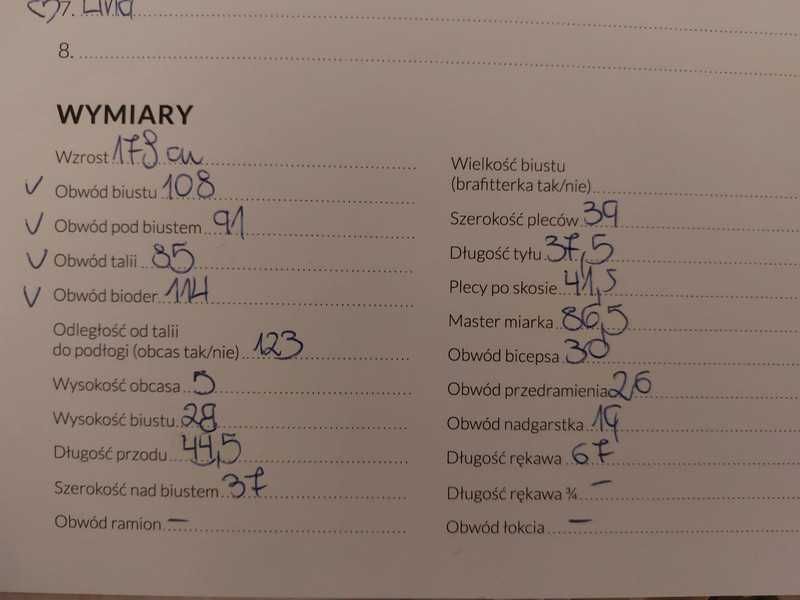 7. Lina
8.
WYMIARY
Wzrost 178 cm
✓ Obwód biustu 108
✓ Obwód pod biustem 91
✓ Obwód talii 85
✓ Obwód bioder 114
Odległość od talii
do podłogi (obcas tak/nie) 123
Wysokość obcasa 5
Wysokość biustu 28
Długość przodu 44,5
Szerokość nad biustem 37
Obwód ramion –
Wielkość biustu
(brafitterka tak/nie)
Szerokość pleców 39
Długość tyłu 37,5
Plecy po skosie 41,5
Master miarka 86,5
Obwód bicepsa 30
Obwód przedramienia 26
Obwód nadgarstka 19
Długość rękawa 67
Długość rękawa ¾ –
Obwód łokcia –